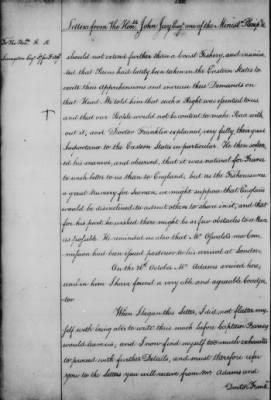 Letters from The Honble John Jay Esqr one of the Minist. Plenip.
To The Honble R. R.
Livingston Esqr
should not extend further than a Coast Fishery, and insinua-
ted that Pains had lately been taken in the Eastern States to
excite their apprehensions and increase their Demands on
that Head. We told him that such a Right was essential to us,
and that our People would not be content to make Peace with
out it, and Doctor Franklin explained very fully their great
Importance to the Eastern States in particular. He then soften-
ed his manner, and observed, that it was natural for France
to wish better to us than to England, but as the Fisheries were
a great Nursery for Seamen, we might suppose that England
would be disinclined to admit others to share in it, and that
for his part he wished there might be as few obstacles to a Peace
as possible. He reminded us also that Mr Oswalds new Com-
mission had been issued posterior to his arrival at London.
On the 26th October Mr Adams arrived here,
and in him I have found a very able and agreable Coadju-
tor.
When I began this Letter, I did not flatter my-
self with being able to write this much before Captain Barney
would leave us; and I now find myself too much exhausted
to proceed with further Details, and must therefore refer
you to the Letters you will receive from Mr Adams and
Doctor Frank